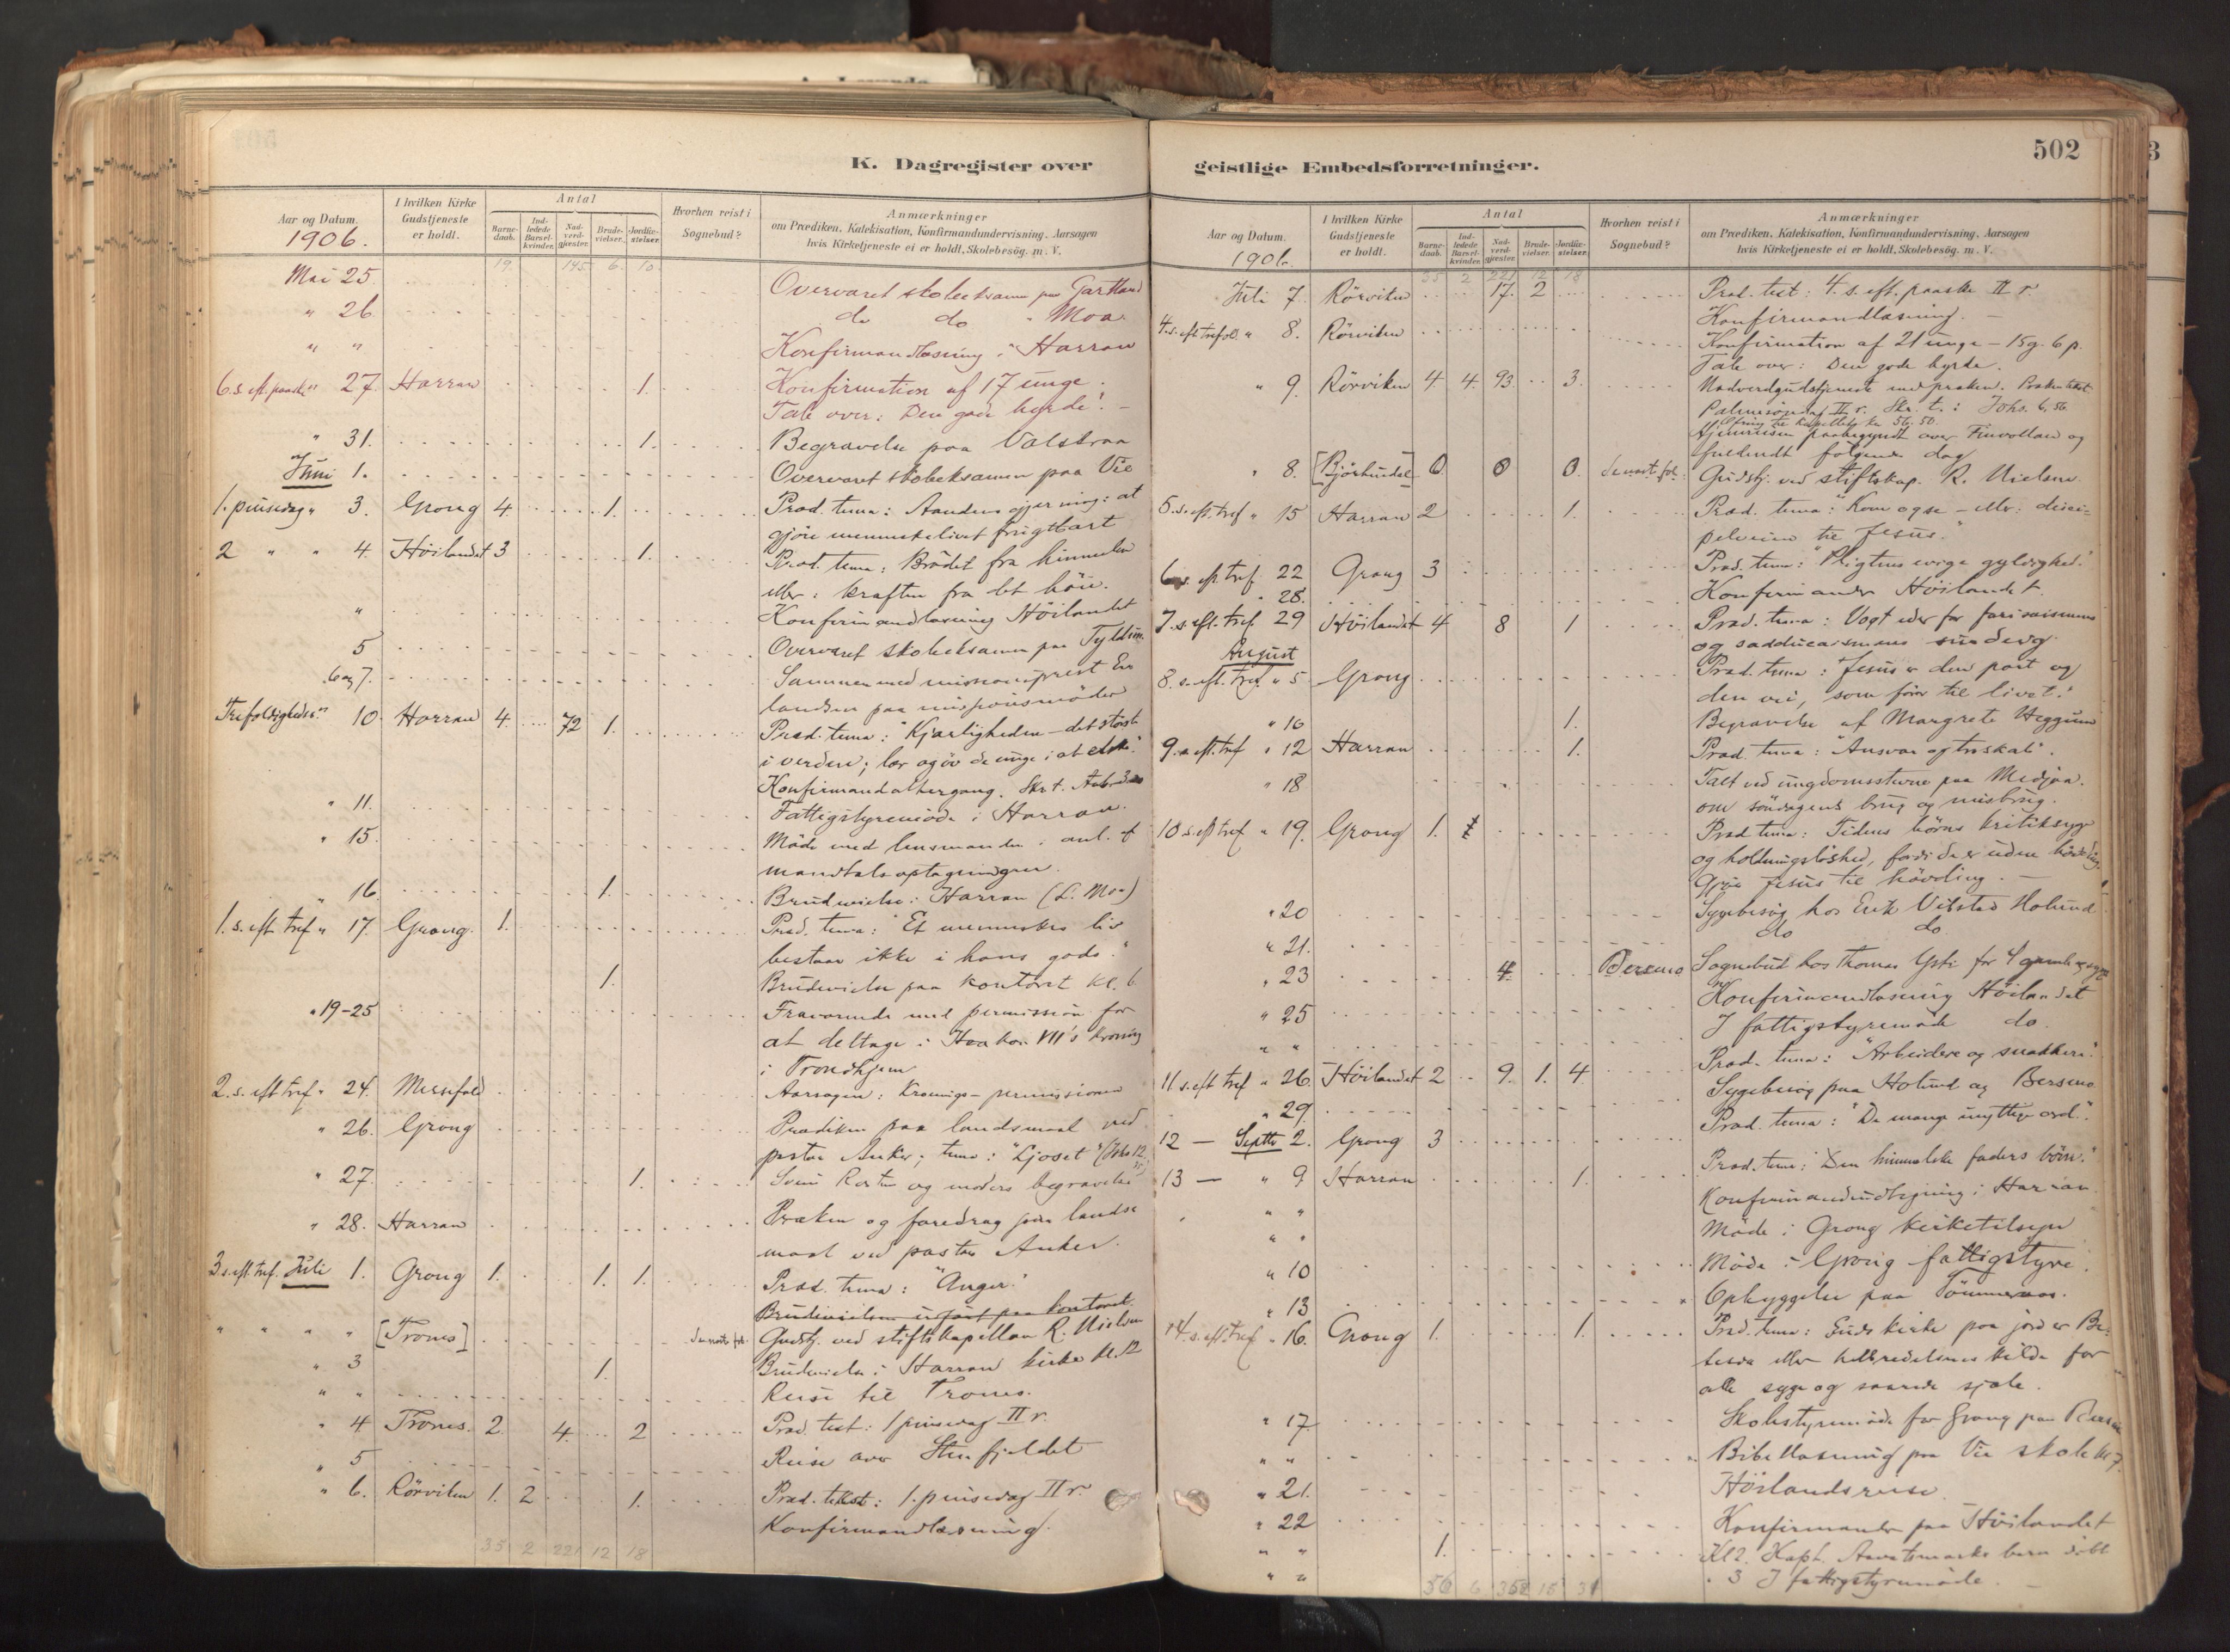 502
K. Dagregister over
geistlige Embedsforretninger.
Aar og Datum.
1906.
I hvilken Kirke Gudstjeneste er holdt.
Antal
Barne-daab.
Ind-ledede Barsel-kvinder.
Nad-verd-gjester.
Brude-vielser.
Jordfæ-stelser.
Hvorhen reist i Sognebud?
Anmærkninger
om Prædiken, Katekisation, Konfirmandundervisning, Aarsagen
hvis Kirketjeneste ei er holdt, Skolebesög. m. V.
19. 145 6 10.
Mai 25 Overværet skoleeksamen paa Gartland
" 26 do do " Moa.
" " Konfirmandlæsning i Harran
6. s. eft. paaske " 27. Harran 1. Konfirmation af 17 unge.
Tale over: Den gode hyrde. –
" 31. 1. Begravelse paa Valstraa
Juni 1. Overværet skoleeksamen paa Vie
1. pinsedag " 3. Grong 4. 1. Præd. tema: Aandens gjerning: at
gjöre menneskelivet frugtbart
2 " " 4. Höilandet 3 1. Præd. tema: Brödet fra himmelen
eller: kraften fra det höie.
" Konfirmandlæsning Höilandet
5 Overværet skoleeksamen paa
6 og 7. Sammen med missionsprest
landsen paa missionsmöder
Trefoldigheds " 10. Harran 4. 72 1. Præd. tema: "Kjærligheden – det störste
i verden; lær og öv de unge i at elske."
Konfirmandaltergang. Skr. t.
" 11. Fattigstyremöde i Harran.
" 15. Möde med lensmanden i anl. af
mandtalsoptagningen.
" 16. 1. Brudevielse i Harran (L. Moa)
1. s. eft. tref " 17. Grong. 1. Præd. tema: "Et menneskes liv
bestaar ikke i hans gods."
1. Brudevielse paa kontoret kl. 6
" 19-25 Fraværende med permission for
at deltage i Haakon VII's kroning
i Trondhjem
2. s. eft tref " 24. Mersfeld Aarsagen: Kronings-permissionen
" 26. Grong Prædiken paa landsmaal ved
pastor Anker; tema: "Ljoset" (Johs 12
" 27. 1. og moders begravelse
" 28. Harran Præken og foredrag paa lands-
maal ved pastor Anker.
3. s. eft. tref. Juli 1. Grong 1. 1. 1. Præd. tema: "Anger."
Brudevielsen udfört paa kontoret.
" " " " [Trones] Gudstj. ved stiftskapellan R. Nielsen
" 3 1. Brudevielse i Harran kirke kl. 12
" " Reise til Trones.
" 4 Trones. 2. 4. 2 Præd. text: 1 pinsedag II r.
" 5 Reise over Stenfjeldet
" 6. Rörviken 1. 2 1. Præd. tekst: 1. pinsedag II r.
Konfirmandlæsning.
35 2 221 12 18
Aar og Datum.
1906.
I hvilken Kirke Gudstjeneste er holdt.
Antal
Barne-daab.
Ind-ledede Barsel-kvinder.
Nad-verd-gjester.
Brude-vielser.
Jordfæ-stelser.
Hvorhen reist i Sognebud?
Anmærkninger
om Prædiken, Katekisation, Konfirmandundervisning, Aarsagen
hvis Kirketjeneste ei er holdt, Skolebesög. m. V.
35 2 221 12 18
Juli 7. Rörviken 17. 2 Præd. text: 4. s. eft. paaske II r
Konfirmandlæsning. –
4. s. eft trefold. " 8. Rörviken Konfirmation af 21 unge – 15 g. 6 p.
Tale over: Den gode hyrde.
" 9. Rörviken 4. 4. 93. 3. Nadverdgudstjeneste med præken. Præken tekst
Palmesöndag II r. Skr. t.: Johs. 6, 56.
Hjemreisen paabegyndt over Finvollan og
fuldendt fölgende dag
" 8. [Björhusdal] 0 0 0. Gudstj. ved stiftskap. R. Nielsen.
5. s. eft. tref " 15 Harran 2 1. Præd. tema: "Kom og se – eller: disci-
pelveien til Jesus."
6. s. eft. tref. 22 Grong 3 Præd. tema: "Pligtens evige gyldighed."
" 28. Konfirmander Höilandet.
7. s. eft. tref 29 Höilandet 4 8 1 Præd. tema: Vogt eder for farisæismens
og sadducæismens surdeig.
August
8. s. eft. tref. " 5 Grong Præd. tema: "Jesus er den port og
den vei, som förer til livet."
" 10 1. Begravelse af Margrete Heggum
9. s. eft. tref " 12 Harran 1. Præd. tema: "Ansvar og troskab".
" 18 Talt ved ungdomsstevne paa Medjaa.
om söndagens brug og misbrug.
10. s. eft tref " 19. Grong 1. Præd tema: Tidens börns kritiksyge
og holdningslöshed, fordi de er uden hövding.
Gjör Jesus til hövding. –
" 20 Sygebesög hos Erik Vibstad Holund
" 21. do do
" 23 4. Bersmo Sognebud hos Thomas for 4 gamle
" 25 Konfirmandlæsning Höilandet
" " I fattigstyremöde do.
11. s. eft tref " 26. Höilandet 2 9. 1. 4. Præd. tema: "Arbeidere og snakkere."
" 29. Sygebesög paa Holund og Bersmo
12 — Septbr 2. Grong 3 Præd. tema: "De mange unyttige ord."
13 — " 9 Harran 1. Præd. tema: "Den himmelske faders börn."
" " Konfirmandudsigning i Harran
" " Möde i Grong kirketilsyn
" 10 Möde i Grong fattigstyre.
" 13 Ophyggelse paa Tömmeraas.
14. s. eft. tref " 16. Grong 1. 1. Præd. tema: Guds kirke paa jord er Be-
tesda eller helbredelsens kilde for
alle syge og saarede sjæle.
" 17 Skolestyremöde for Grong paa
" " Bibellæsning paa Vie skole kl 7.
" 21. Höilandsreise.
" 22 Konfirmander paa Höilandet
" " 1. Kl 2. Kapt. Aavatsmarks barn döbt
" " " 3 I fattigstyremöde. –
56 6 352 15 31